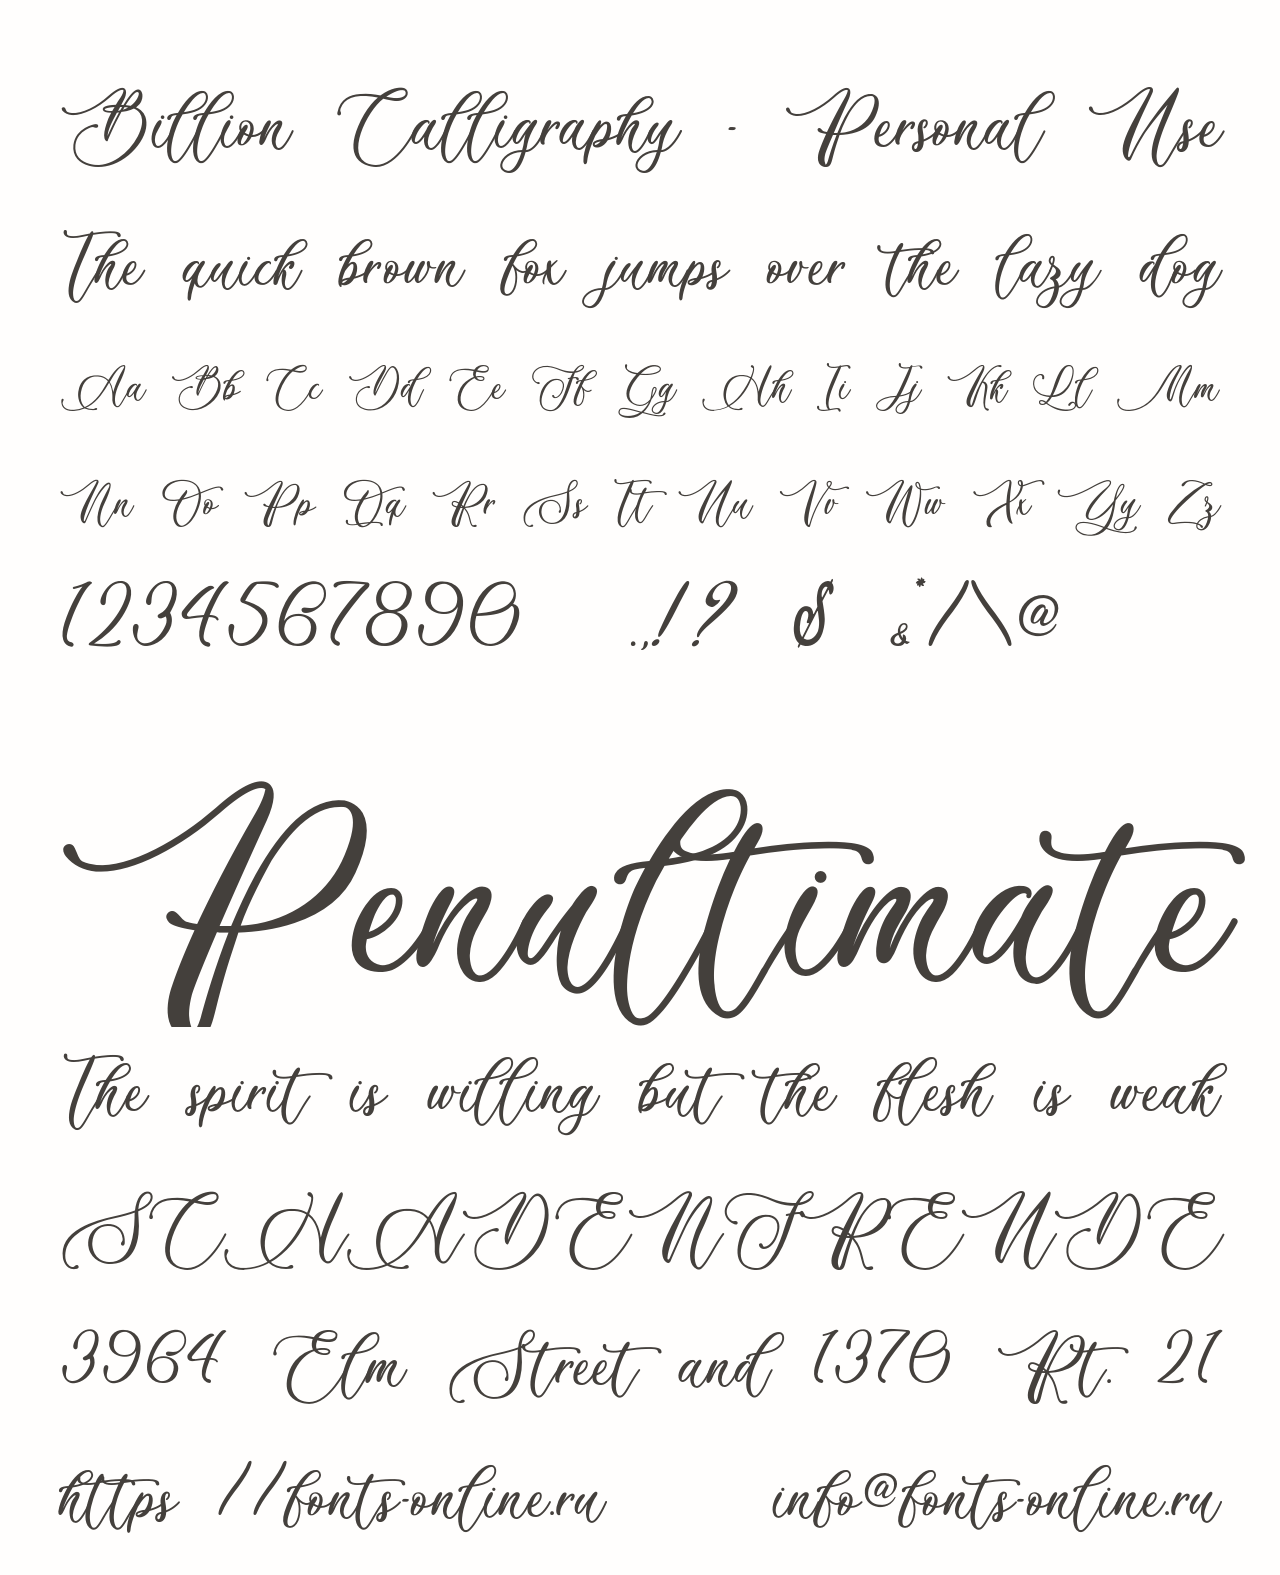 Billion Calligraphy - Personal Use
The quick brown fox jumps over the lazy dog
Aa Bb Cc Dd Ee Ff Gg Hh Ii Jj Kk Ll Mm
Nn Oo Pp Qq Rr Ss Tt Uu Vv Ww Xx Yy Zz
1234567890 .,!? $ &*/\@
Penultimate
The spirit is willing but the flesh is weak
SCHADENFREUDE
3964 Elm Street and 1370 Rt. 21
https //fonts-online.ru info@fonts-online.ru